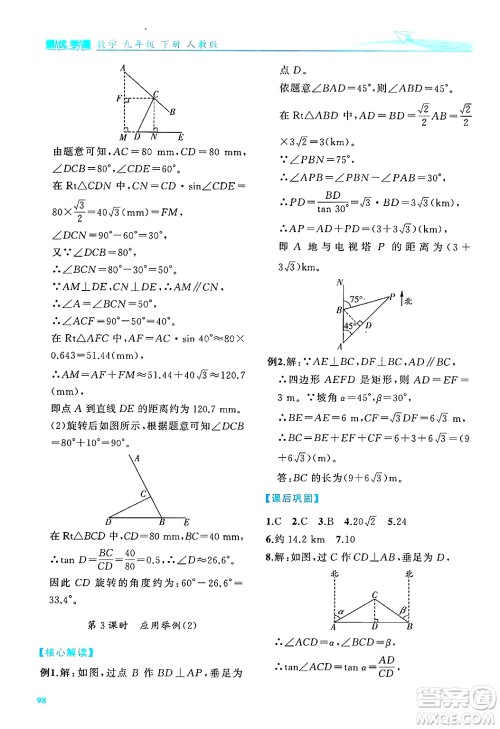 数学 九年级 下册 人教版
A
C
B
F
M D N E
由题意可知，AC＝80 mm，CD＝80 mm，
∠DCB＝80°，∠CDE＝60°.
在 Rt△CDN 中，CN＝CD·sin∠CDE＝
80×√3/2＝40√3(mm)＝FM，
∠DCN＝90°－60°＝30°.
又∵∠DCB＝80°，
∴∠BCN＝80°－30°＝50°.
∵AM⊥DE，CN⊥DE，
∴AM∥CN，∴∠A＝∠BCN＝50°，
∴∠ACF＝90°－50°＝40°.
在 Rt△AFC 中，AF＝AC·sin 40°≈80×
0.643＝51.44(mm)，
∴AM＝AF＋FM＝51.44＋40√3≈
120.7(mm)，
即点 A 到直线 DE 的距离约为 120.7 mm.
(2)旋转后如图所示，根据题意可知∠DCB
＝80°＋10°＝90°.
C
D B E
在 Rt△BCD 中，CD＝80 mm，BC＝40 mm，
∴tan D＝BC/CD＝40/80＝0.5，∴∠D≈26.6°.
因此 CD 旋转的角度约为：60°－26.6°＝
33.4°.
第 3 课时 应用举例(2)
【核心解读】
例1.解：如图，过点 B 作 BD⊥AP，垂足为
98
点 D.
依题意∠BAD＝45°，则∠ABD＝45°.
在 Rt△ABD 中，AD＝BD＝√2/2 AB＝√2/2
×3√2＝3(km).
∵∠PBN＝75°，
∴∠APB＝∠PBN－∠PAB＝30°，
∴PD＝BD/tan 30°＝3√3(km)，
∴AP＝AD＋PD＝(3＋3√3)km.
即 A 地与电视塔 P 的距离为(3＋
3√3)km.
N
75° P
B 北
45° D
A
例2.解：∵AE⊥BC，DF⊥BC，AD∥BC，
∴四边形 AEFD 是矩形，则 EF＝AD＝
3 m. ∵坡角 α＝45°，β＝30°，
∴BE＝AE＝6 m，CF＝√3DF＝6√3 m，
∴BC＝BE＋EF＋CF＝6＋3＋6√3＝(9＋
6√3)m.
答：BC 的长为(9＋6√3)m.
【课后巩固】
1.C 2.C 3.B 4.20√2 5.24
6.约 14.2 km 7.10
8.解：如图，过 C 作 CD⊥AB，垂足为 D，
北 北
C
α β
A D B
∴∠ACD＝α，∠BCD＝β，
∴tan∠ACD＝tanα＝AD/CD，